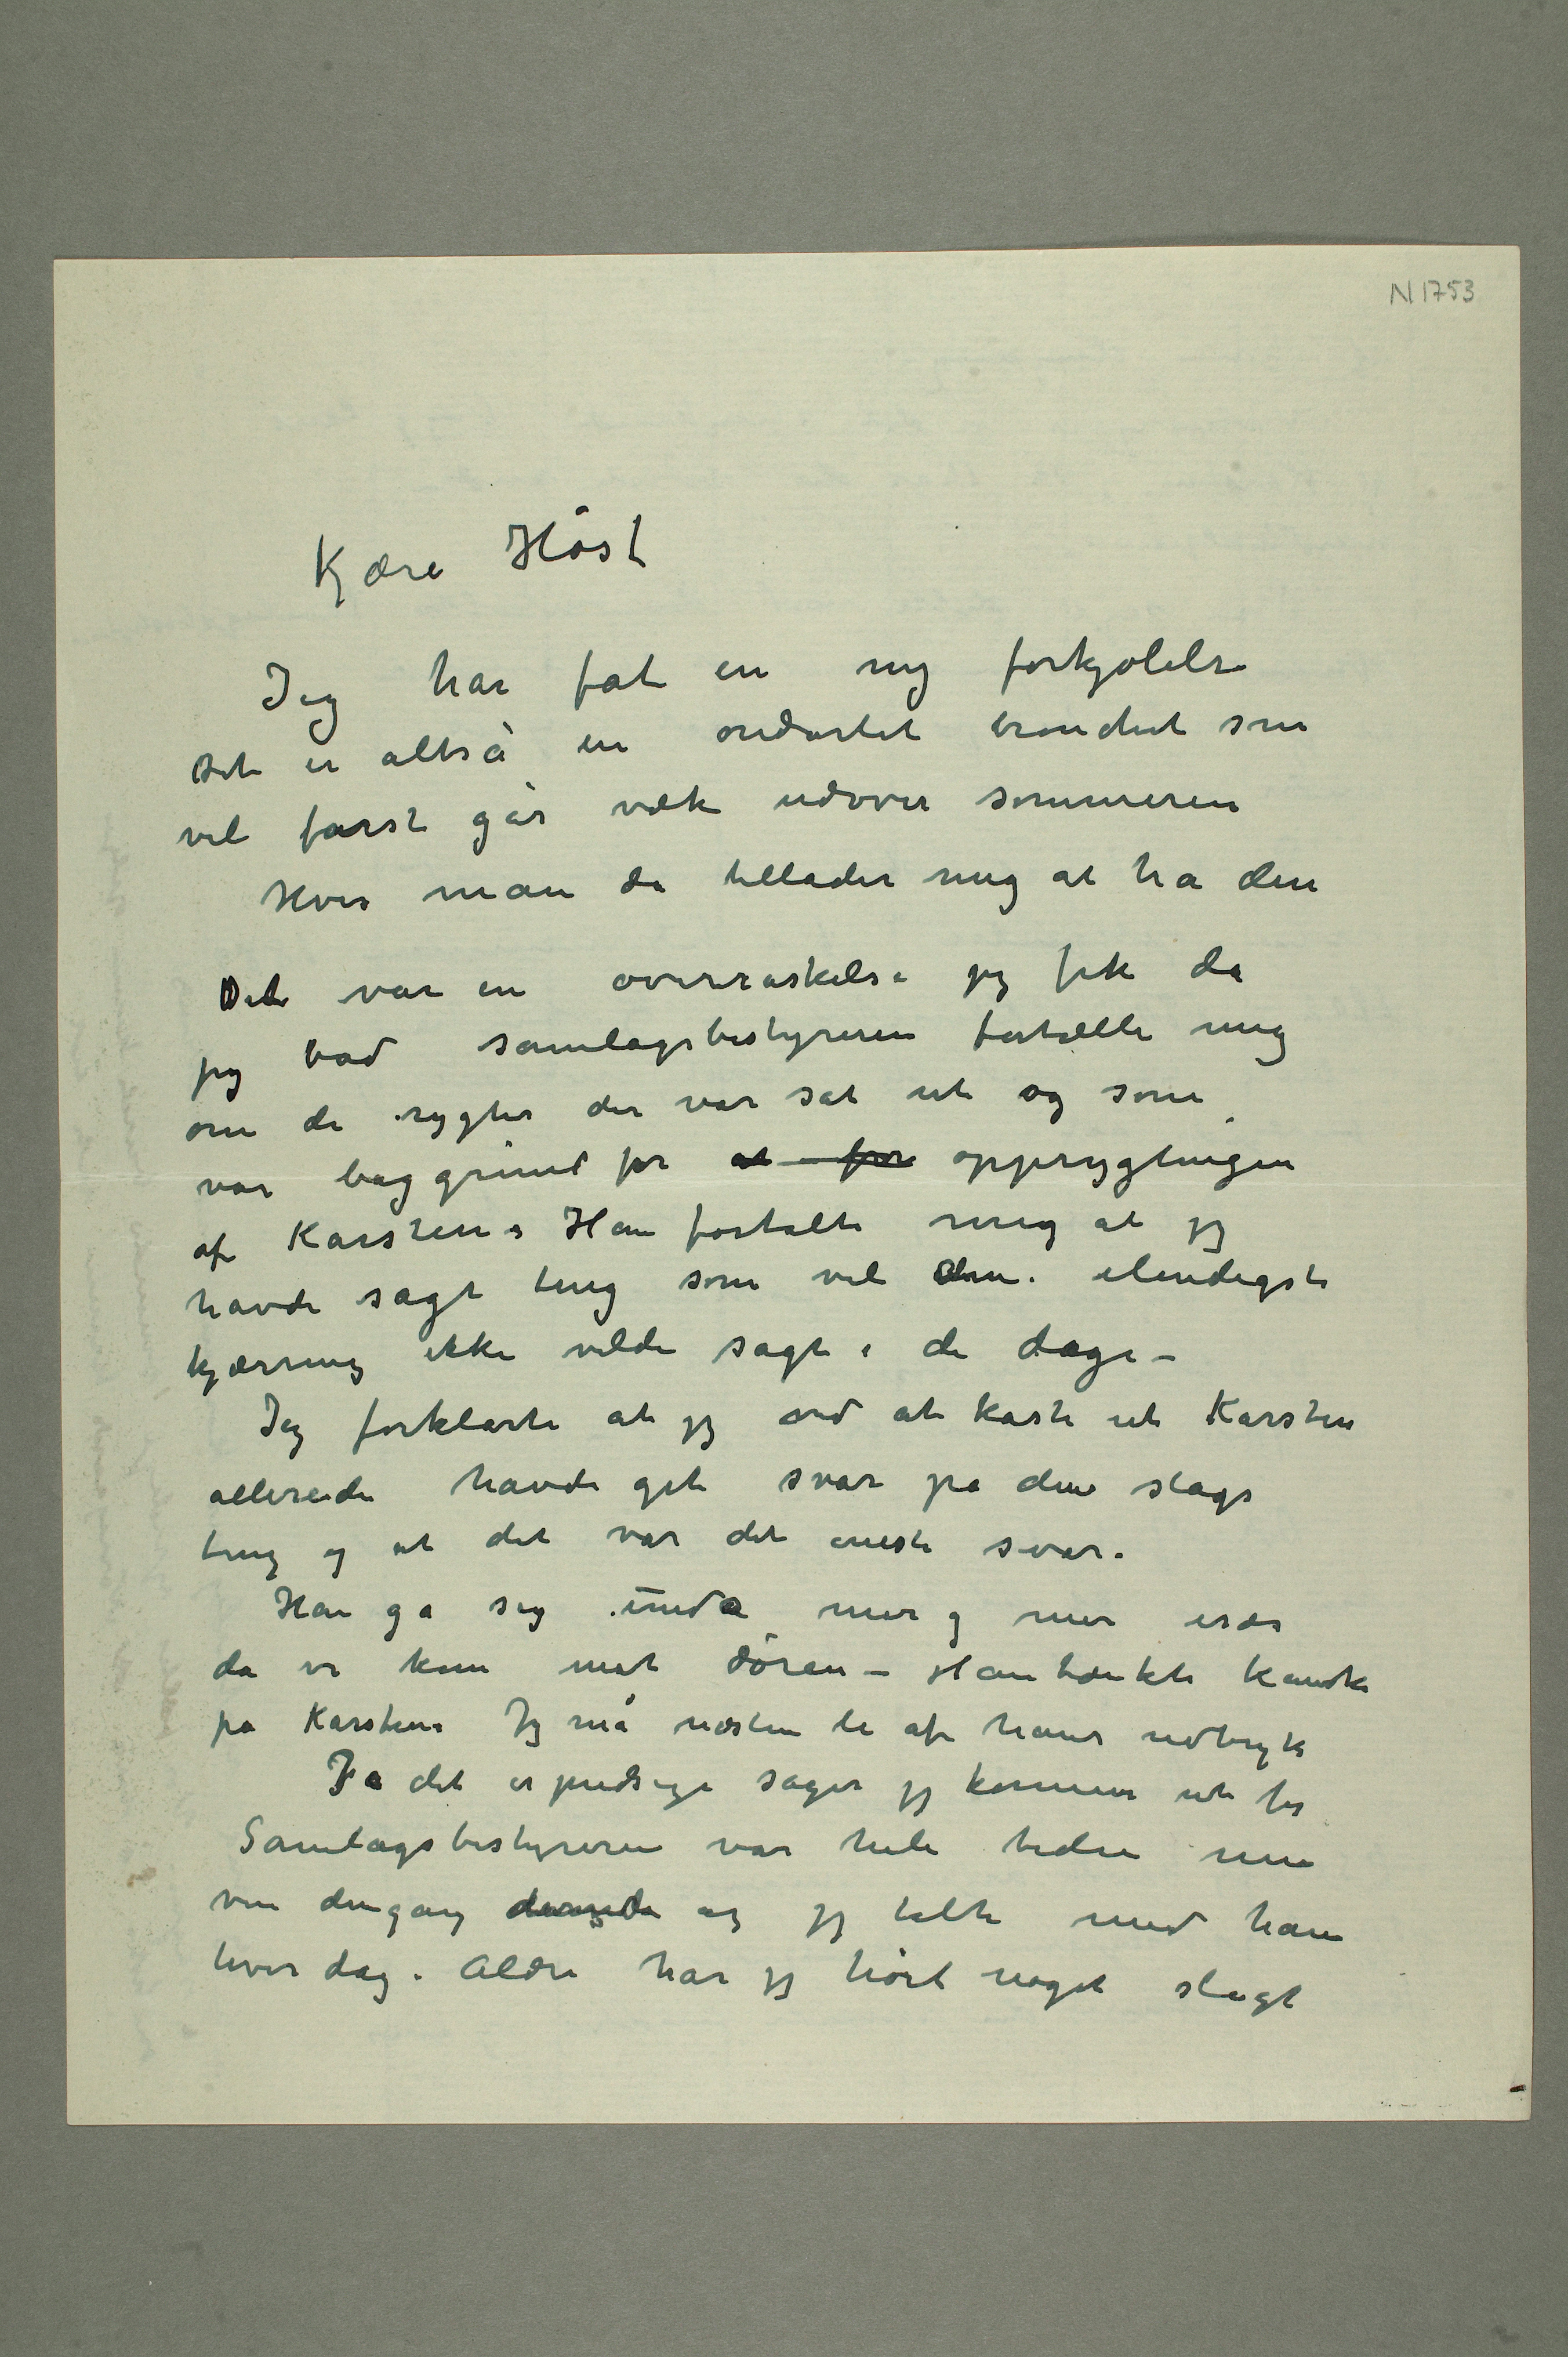 N 1753
Kjære Høst
Jeg har fåt en ny forkjølelse
det er altså en ondartet bronchit som
vel først går væk udover sommeren
Hvis man da tillader mig at ha den
Det var en overraskelse jeg fik da
jeg bad samlagsbestyreren fortælle mig
om de rygter der var sat ut og som
var baggrund for at for opprygtningen
af Karsten. Han fortalte mig at jeg
havde sagt ting som vel den elendigste
kjærring ikke vilde sagt i de dage –
Jeg forklarte at jeg ved at kaste ut Karsten
allerede havde git svar på den slags
ting og at det var det eneste svar.
Han ga sig unda mer og mer især
da vi kom mot døren – Han tænkte kanske
på Karsten. Jeg må næsten le af hans udtryk
Ja det er pudsige sager jeg kommer ut for
Samlagsbestyreren var hele tiden min
ven dengang og jeg talte med ham
hver dag. Aldri har jeg hørt noget sligt